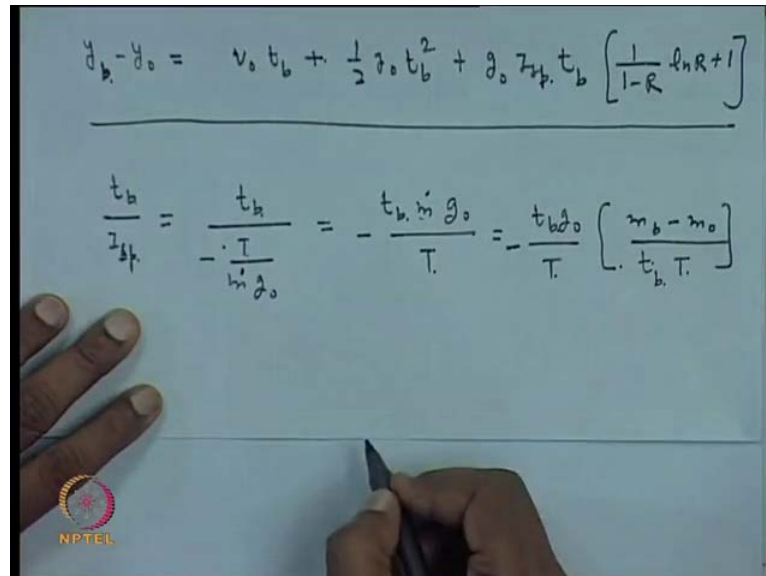 y_b. - y_0 = v_0 t_b + 1/2 g_0 t_b^2 + g_0 I_sp. t_b [ 1/(1-R) ln R + 1 ]
t_b / I_sp. = t_b / (- T / (ṁ g_0)) = - (t_b. ṁ g_0) / T. = - (t_b g_0) / T. [ (m_b - m_0) / (t_b. T.) ]
NPTEL